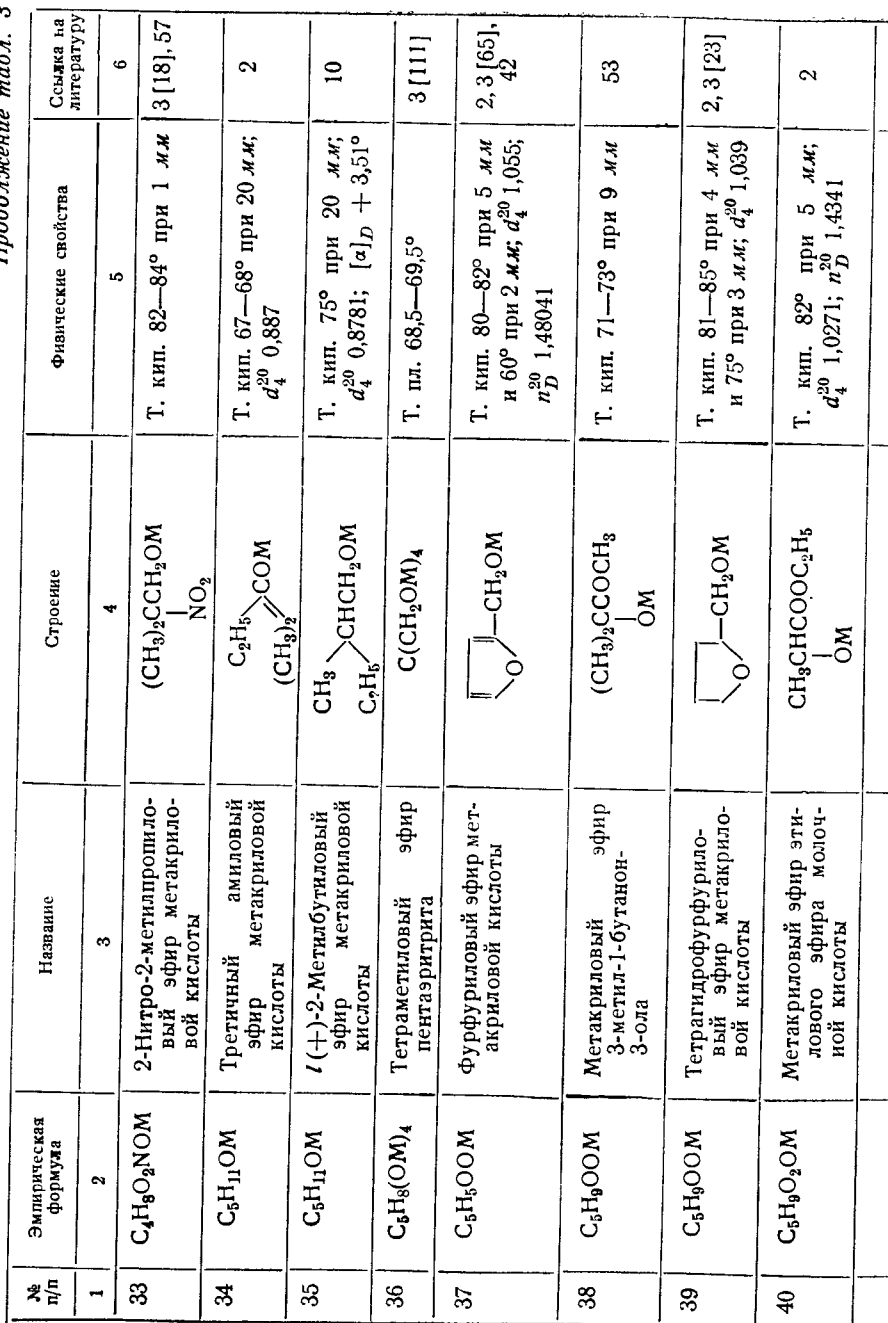 Продолжение табл. 3
№ п/п
Эмпирическая формула
Название
Строение
Физические свойства
Ссылка на литературу
1
2
3
4
5
6
33
C4H8O2NOM
2-Нитро-2-метилпропило-
вый эфир метакрило-
вой кислоты
(CH3)2CCH2OM
NO2
Т. кип. 82—84° при 1 мм
3 [18], 57
34
C5H11OM
Третичный амиловый
эфир метакриловой
кислоты
C2H5
COM
(CH3)2
Т. кип. 67—68° при 20 мм;
d₄²⁰ 0,887
2
35
C5H11OM
l(+)-2-Метилбутиловый
эфир метакриловой
кислоты
CH3
CHCH2OM
C2H5
Т. кип. 75° при 20 мм;
d₄²⁰ 0,8781; [α]D + 3,51°
10
36
C5H8(OM)4
Тетраметиловый эфир
пентаэритрита
C(CH2OM)4
Т. пл. 68,5—69,5°
3 [111]
37
C5H5OOM
Фурфуриловый эфир мет-
акриловой кислоты
O
—CH2OM
Т. кип. 80—82° при 5 мм
и 60° при 2 мм; d₄²⁰ 1,055;
n_D²⁰ 1,48041
2, 3 [65],
42
38
C5H9OOM
Метакриловый эфир
3-метил-1-бутанон-
3-ола
(CH3)2CCOCH3
OM
Т. кип. 71—73° при 9 мм
53
39
C5H9OOM
Тетрагидрофурфурило-
вый эфир метакрило-
вой кислоты
O
—CH2OM
Т. кип. 81—85° при 4 мм
и 75° при 3 мм; d₄²⁰ 1,039
2, 3 [23]
40
C5H9O2OM
Метакриловый эфир эти-
лового эфира молоч-
ной кислоты
CH3CHCOOC2H5
OM
Т. кип. 82° при 5 мм;
d₄²⁰ 1,0271; n_D²⁰ 1,4341
2